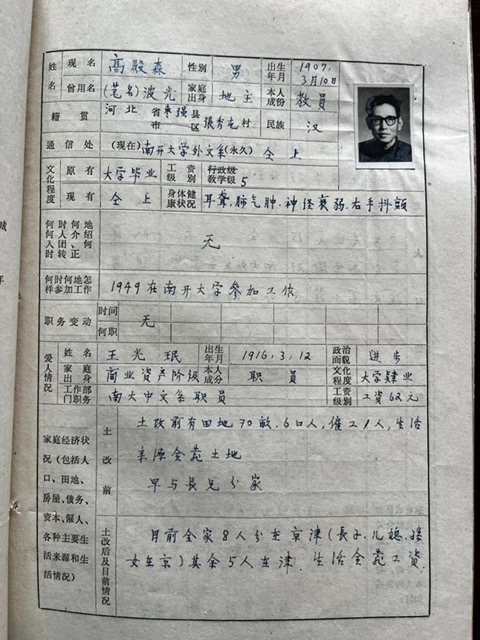 姓名 现名 高殿森 性别 男 出生年月 1907.3月10日
曾用名 (笔名)波光 家庭出身 地主 本人成份 教员
籍贯 河北 省市 枣强 县区 张秀屯 村 民族 汉
通信处 (现在)南开大学外文系(永久) 仝上
文化程度 原有 大学毕业 工资级别 行政级 教学级 5
现有 仝上 身体健康状况 耳聋.肺气肿.神经衰弱.右手抖颤
何时何地何人介绍入团、何时转正 无
何时何地怎样参加工作 1949在南开大学参加工作
职务变动 时间 无
何职
爱人情况 姓名 王光珉 出生年月 1916,3,12 政治面貌 进步
家庭出身 商业资产阶级 本人成分 职员 文化程度 大学肄业
工作部门职务 南大中文系职员 工资级别 工资62元
家庭经济状况(包括人口、田地、房屋、债务、资本、雇人、各种主要生活来源和生活情况)
土改前 土改前有田地70亩.6口人,雇工1人,生活
来源全靠土地
早与长兄分家
土改后及目前情况 目前全家8人分在京津(长子.儿媳.孙
女在京)其余5人在津.生活全靠工资.